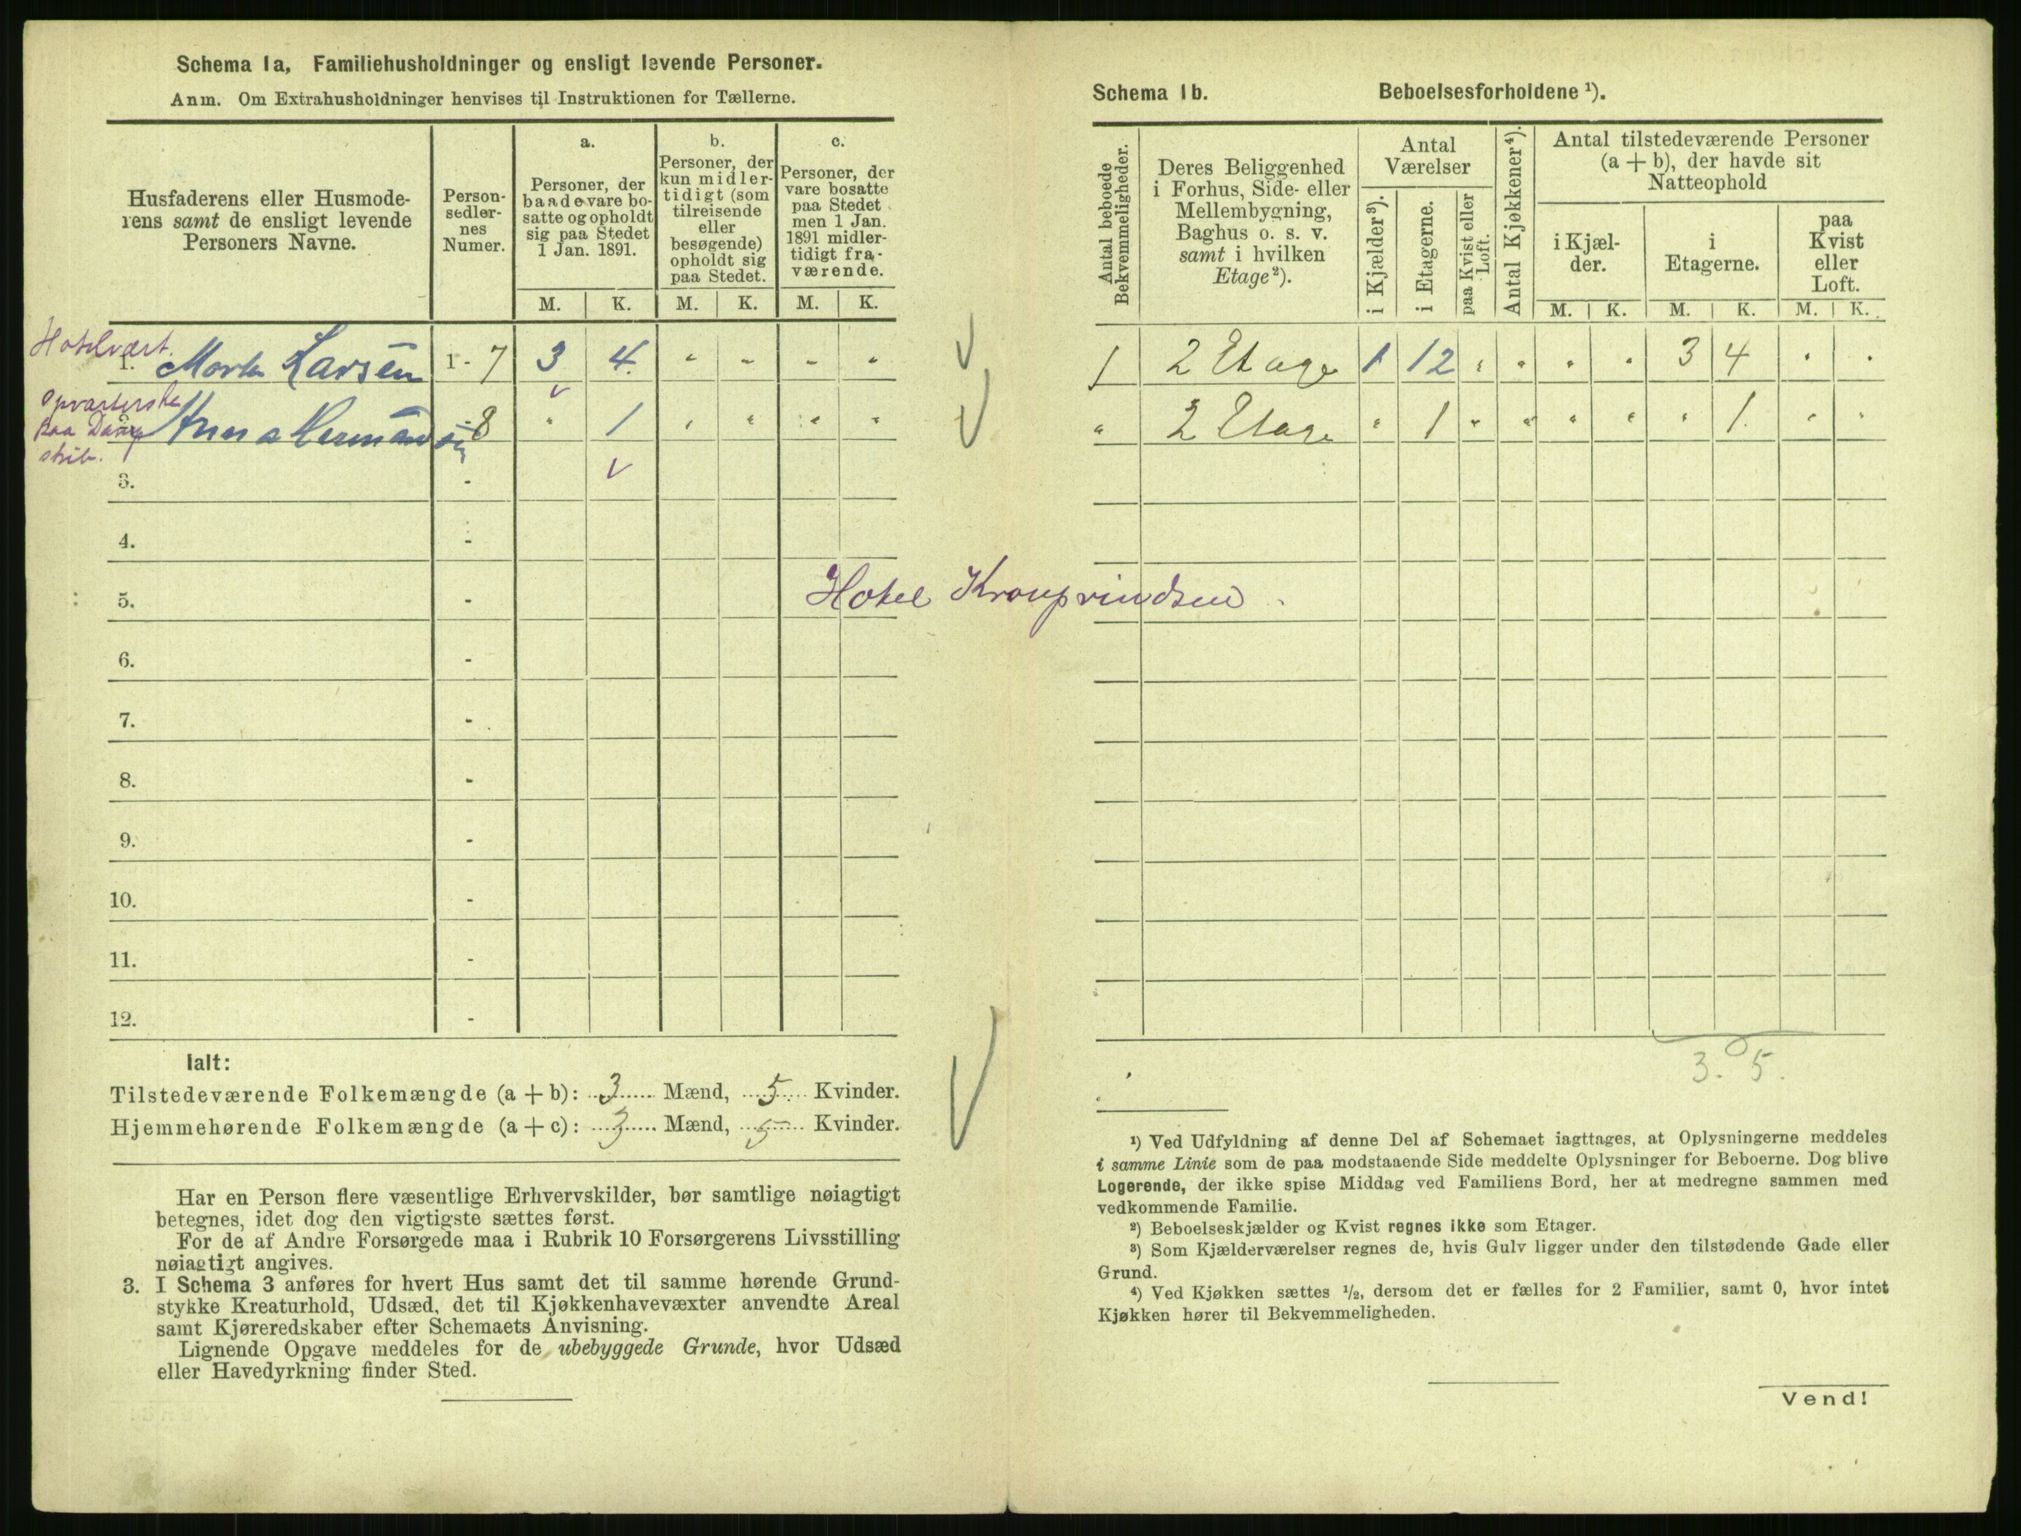 Schema 1a, Familiehusholdninger og ensligt levende Personer.
Anm. Om Extrahusholdninger henvises til Instruktionen for Tællerne.
Husfaderens eller Husmoderens samt de ensligt levende Personers Navne.
Personsedlernes Numer.
a. Personer, der baade vare bosatte og opholdt sig paa Stedet 1 Jan. 1891.
b. Personer, der kun midlertidigt (som tilreisende eller besøgende) opholdt sig paa Stedet.
c. Personer, der vare bosatte paa Stedet men 1 Jan. 1891 midlertidigt fraværende.
M. K. M. K. M. K.
Hotelvært.
1. Morten Larsen 1 - 7 3 4 " " " "
Opvarterske
paa Dampskib.
2. Anna Hermansen - 8 " 1 " " " "
3. -
4. -
5. -
6. -
7. -
8. -
9. -
10. -
11. -
12. -
Hotel Kronprindsen.
Ialt:
Tilstedeværende Folkemængde (a + b): 3 Mænd, 5 Kvinder.
Hjemmehørende Folkemængde (a + c): 3 Mænd, 5 Kvinder.
Har en Person flere væsentlige Erhvervskilder, bør samtlige nøiagtigt
betegnes, idet dog den vigtigste sættes først.
For de af Andre Forsørgede maa i Rubrik 10 Forsørgerens Livsstilling
nøiagtigt angives.
3. I Schema 3 anføres for hvert Hus samt det til samme hørende Grund-
stykke Kreaturhold, Udsæd, det til Kjøkkenhavevæxter anvendte Areal
samt Kjøreredskaber efter Schemaets Anvisning.
Lignende Opgave meddeles for de ubebyggede Grunde, hvor Udsæd
eller Havedyrkning finder Sted.
Schema 1b. Beboelsesforholdene ¹).
Antal beboede Bekvemmeligheder.
Deres Beliggenhed i Forhus, Side- eller Mellembygning, Baghus o. s. v. samt i hvilken Etage²).
Antal Værelser
i Kjælder³).
i Etagerne.
paa Kvist eller Loft.
Antal Kjøkkener⁴).
Antal tilstedeværende Personer (a + b), der havde sit Natteophold
i Kjælder.
i Etagerne.
paa Kvist eller Loft.
M. K. M. K. M. K.
1 2 Etage 1 12 " " " " 3 4 " "
" 2 Etage " 1 " " " " " 1 " "
3. 5.
¹) Ved Udfyldning af denne Del af Schemaet iagttages, at Oplysningerne meddeles
i samme Linie som de paa modstaaende Side meddelte Oplysninger for Beboerne. Dog blive
Logerende, der ikke spise Middag ved Familiens Bord, her at medregne sammen med
vedkommende Familie.
²) Beboelseskjælder og Kvist regnes ikke som Etager.
³) Som Kjælderværelser regnes de, hvis Gulv ligger under den tilstødende Gade eller
Grund.
⁴) Ved Kjøkken sættes ½, dersom det er fælles for 2 Familier, samt 0, hvor intet
Kjøkken hører til Bekvemmeligheden.
Vend!